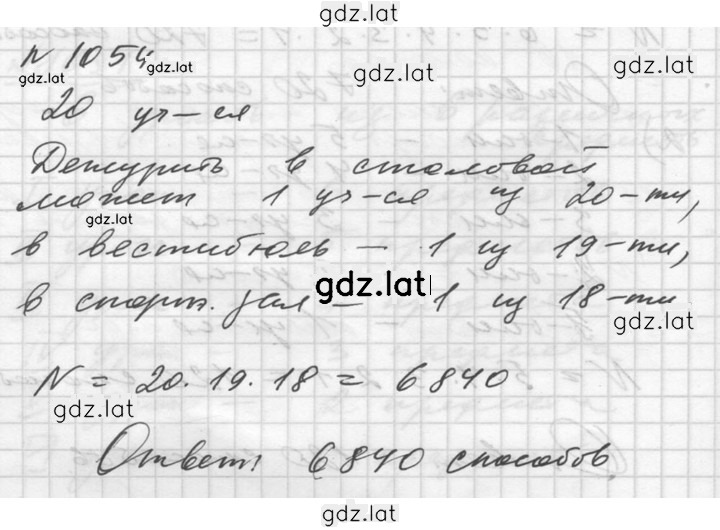 gdz.lat
N 1054
gdz.lat
gdz.lat
gdz.lat
gdz.lat
20 уч-ся
Дежурить в столовой
может 1 уч-ся из 20-ти,
gdz.lat
в вестибюль — 1 из 19-ти,
gdz.lat
в спорт. зал — 1 из 18-ти
gdz.lat
N = 20.19.18 = 6840
gdz.lat
Ответ: 6840 способов.
gdz.lat